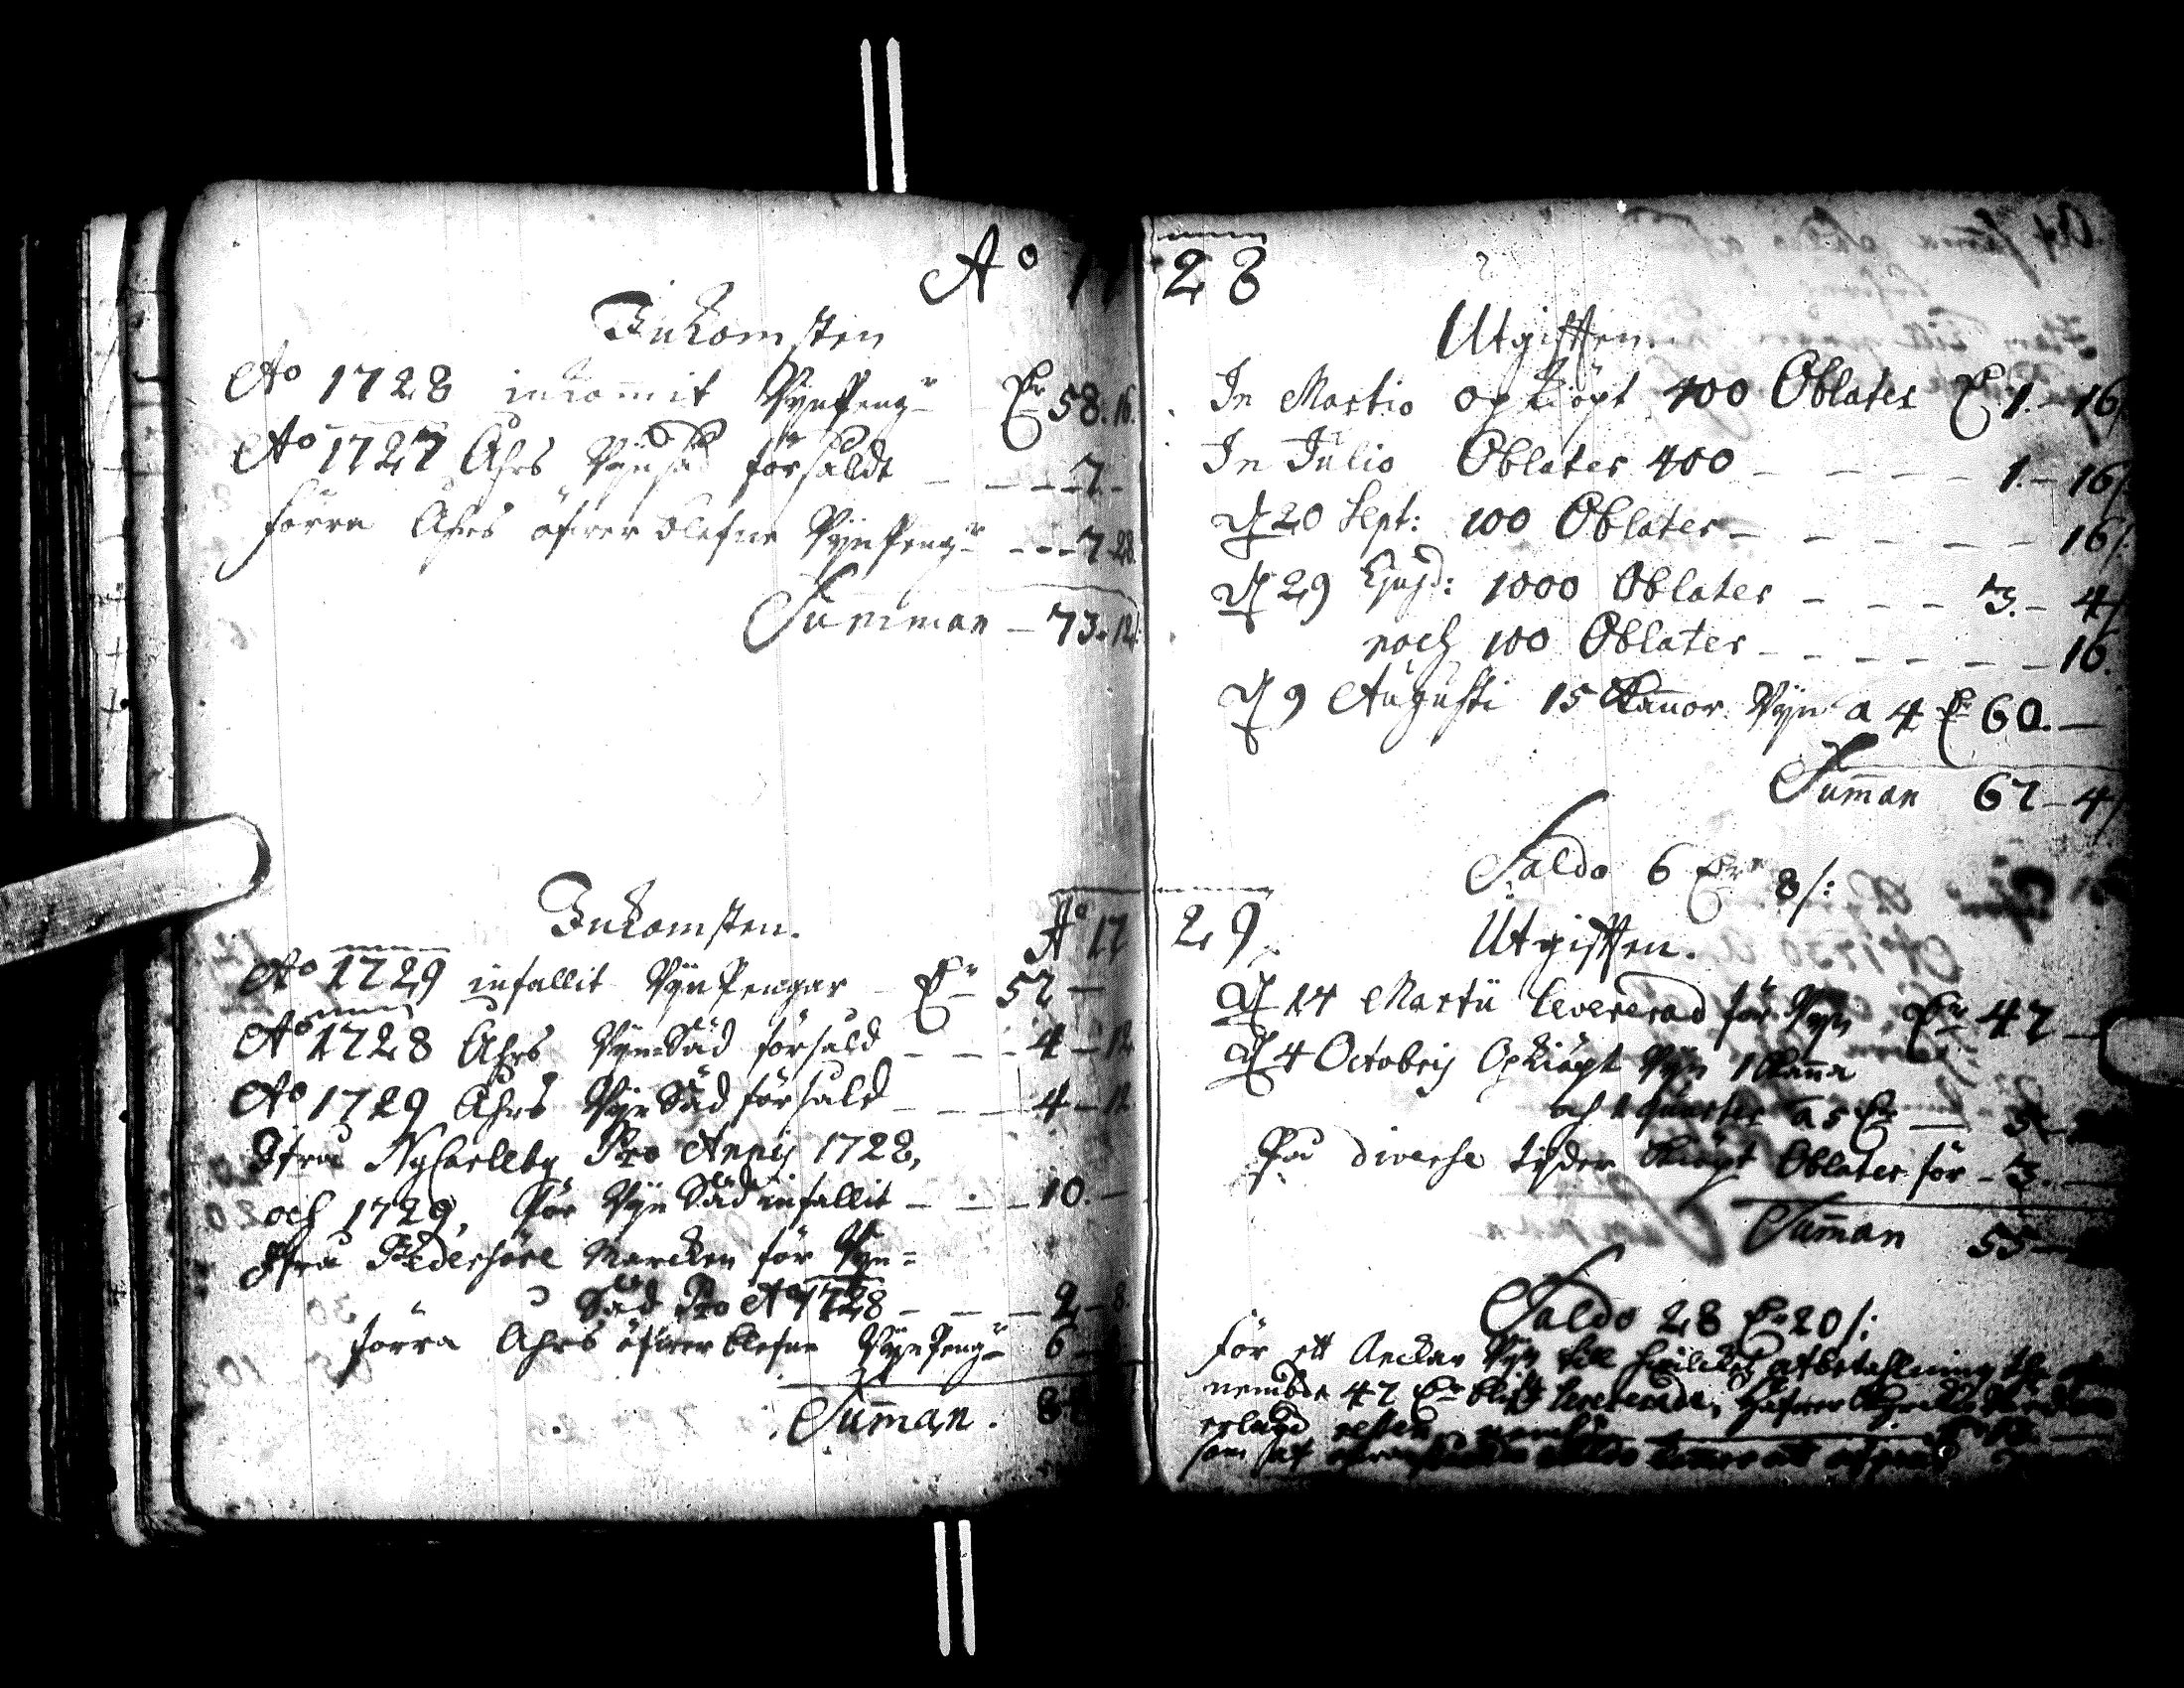 Ao 1728
Inkomsten
Ao 1728 inkommit WijnPeng:r Dr 58.16.
Ao 1727 Åhrs Wijnsäd försåldt 7
förra Åhrs öfwer blefne WijnPeng:r 7.28.
Summan 73.12.
Utgifften
In Martio opkiöpt 400 Oblater Dr 1.-16/:
In Julio Oblater 400 1.-16/:
D 20 Sept: 100 Oblater 16/:
D 29 1000 Oblater 3.-4/:
noch 100 Oblater 16.
D 9 Augusti 15 Kannor Wijn a 4 Dr 60.
Summan 67-4/:
Saldo 6 Dr 8/:
Ao 1729
Inkomsten.
Ao 1729 infallit Wijn Pengar Dr 52
Ao 1728 Åhrs WijnSäd försåld 4-12
Ao 1729 Åhrs WijnSäd försåld 4-12
Ifrå NyCarleby Pro Annis 1728,
och 1729, för Wijn Säd infallit 10.
Ifrå Pedersöre för Wijn=
Säd Pro Ao 1728 2-8.
förra Åhrs öfwer blefne WijnPeng:r 6
Summan.
Utgifften.
D 14 Martii levererad för Wijn Dr 47
D 4 Octobris Opkiöpt Wijn 1 Kanna
och 1 quarter a 5 Dr 5
På diverse tijder kiöpt Oblater för 3.
Summan 55
Saldo 28 Dr 20/:
för ett Anckar Wijn till hwilckes afbetahlning
47 Dr blifit levererade,